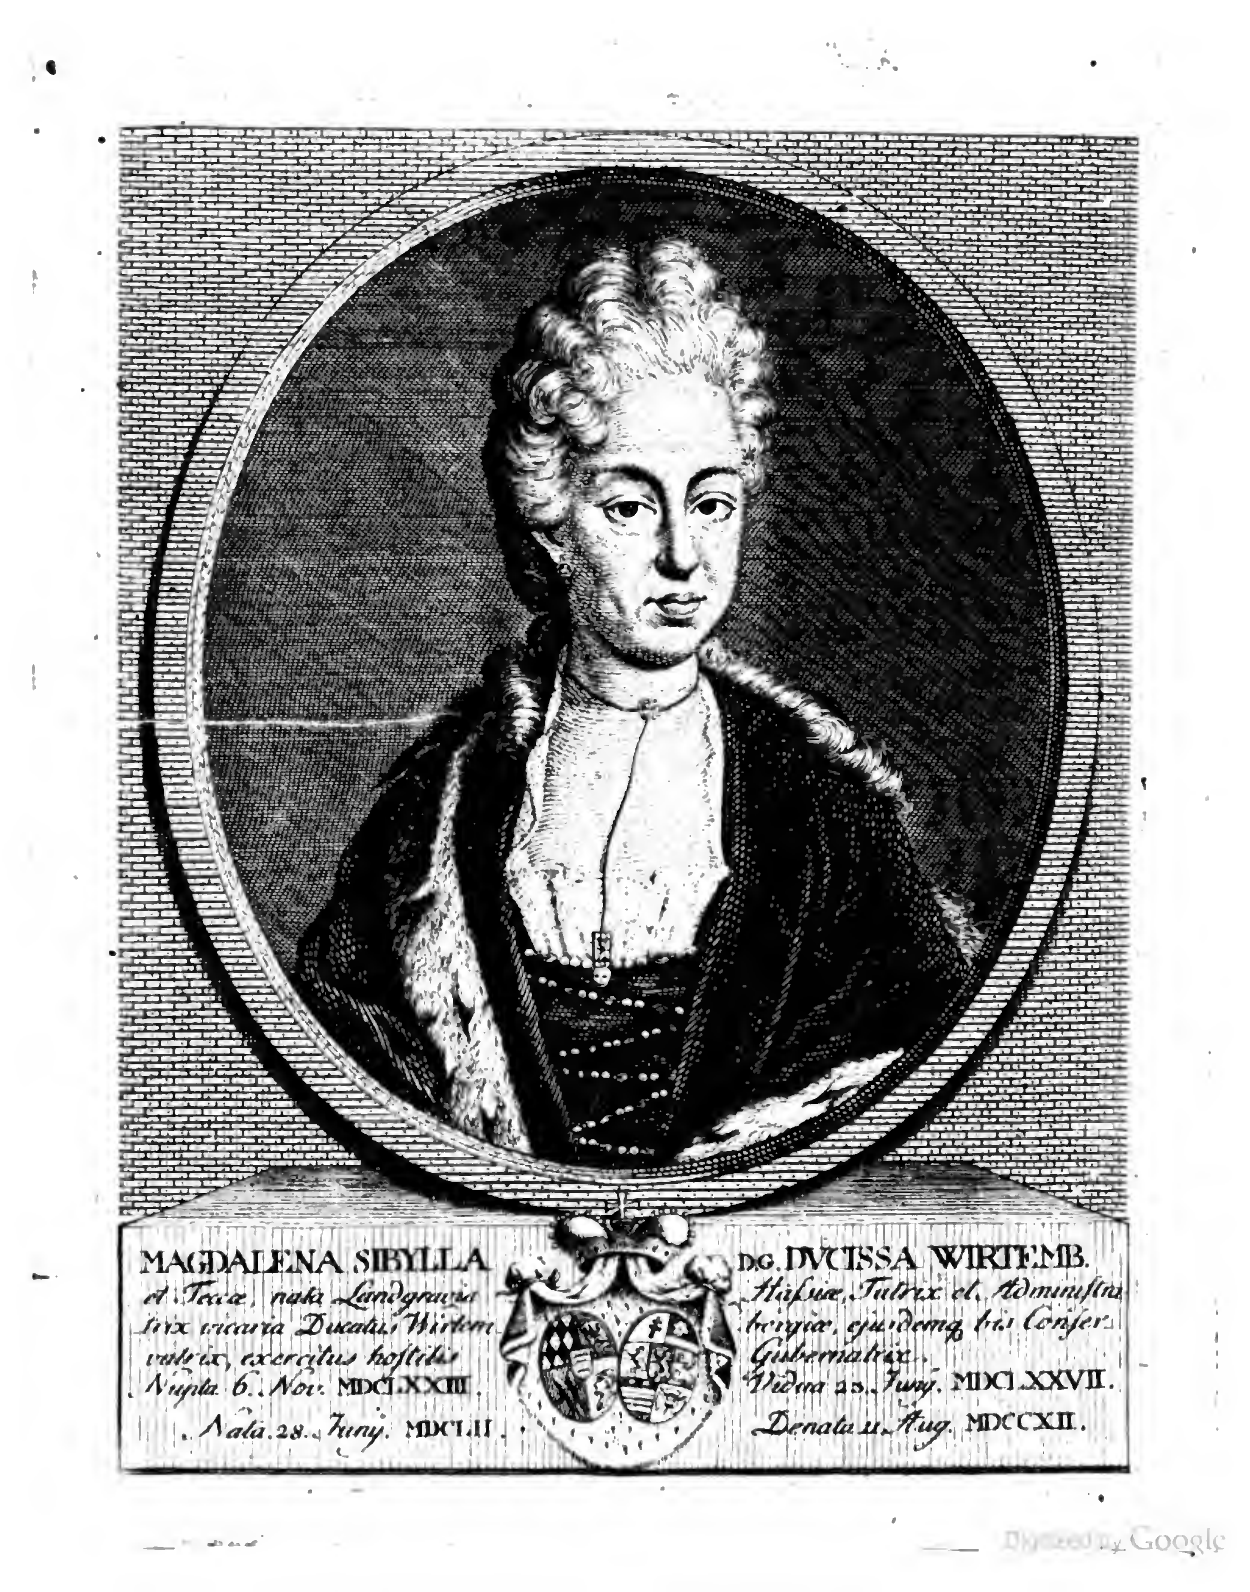 MAGDALENA SIBYLLA D.G. DVCISSA WIRTEMB.
et Teccæ, nata Landgravia Haſsiæ, Tutrix et Adminiſtra
trix vicaria Ducatus Wirtem bergiæ, ejusdemq. bis Conſer
vatrix, exercitus hoſtilis Gubernatrix.
Nupta 6. Nov. MDCLXXIII. Vidua 23. Junÿ. MDCLXXVII.
Nata. 28. Junÿ. MDCLII. Denata 11. Aug. MDCCXII.
Digitized by Google